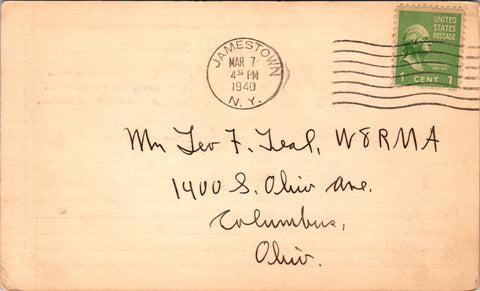 UNITED
STATES
POSTAGE
1 CENT 1
JAMESTOWN
MAR 7
4 30 PM
1940
N. Y.
Mr Leo F. Teal, W8RMA
1400 S. Ohio Ave.
Columbus,
Ohio.